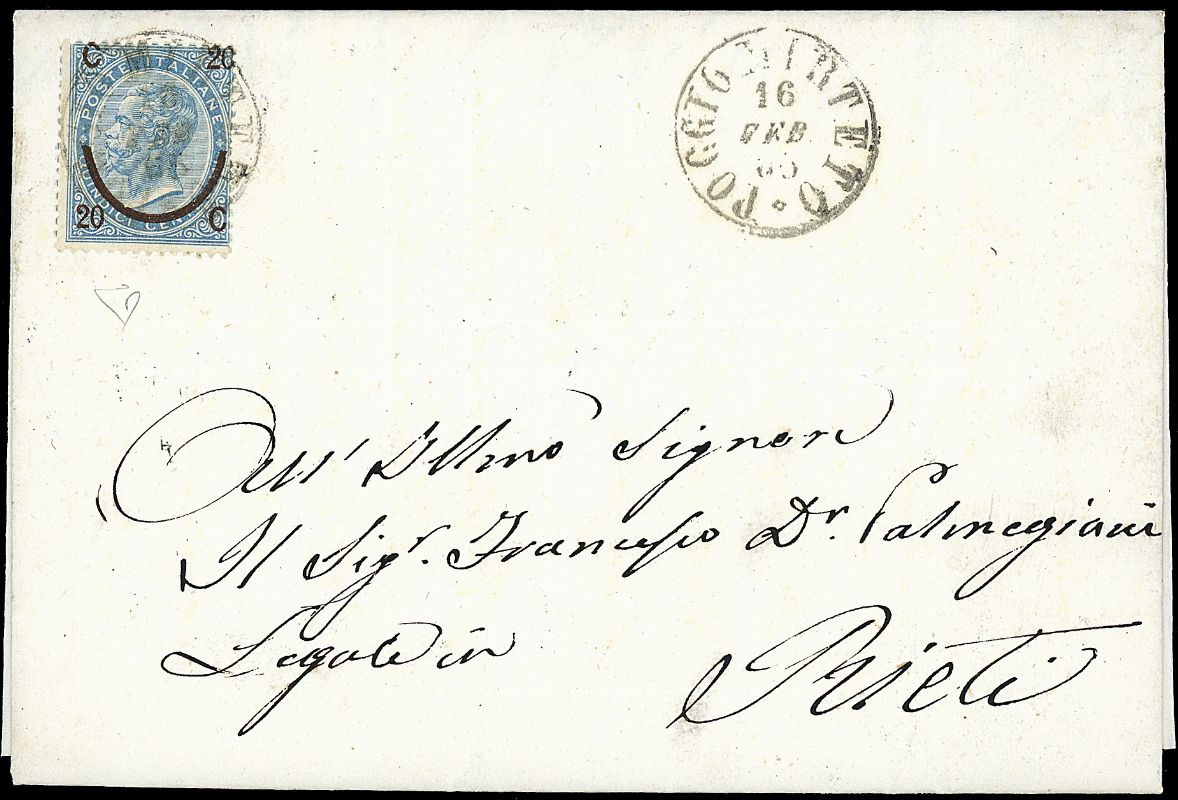 C 20
POSTE ITALIANE
20 C
QUINDICI CENT
POGGIO MIRTETO
16
FEB
All' Illmo Signore
Il Sigr. Francesco Dr. Palmegiani
Legale in
Rieti